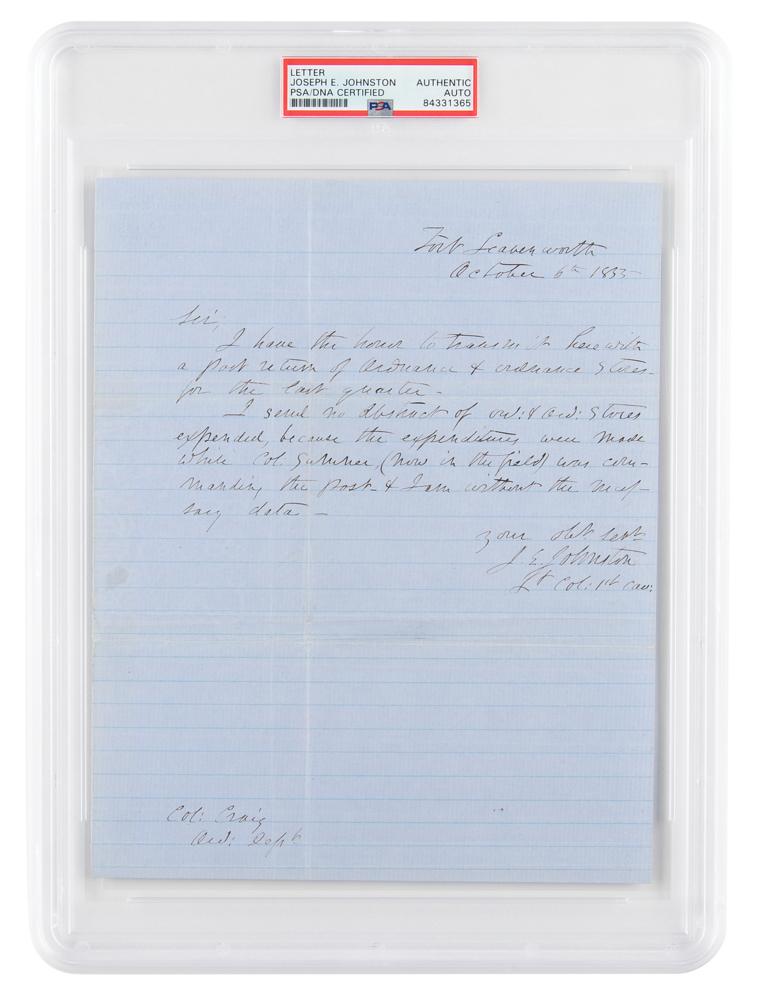 LETTER
JOSEPH E. JOHNSTON AUTHENTIC
PSA/DNA CERTIFIED AUTO
PSA 84331365
Fort Leavenworth
October 6th 1855
Sir,
I have the honor to transmit herewith
a post return of Ordnance & ordnance Stores
for the last quarter -
I send no abstract of ord: & ord: Stores
expended, because the expenditures were made
while Col. Sumner, (now in the field) was com-
manding the post - & I am without the neces-
sary data -
your obt servt
J. E. Johnston
Lt Col: 1st Cav:
Col: Craig
Ord: Dept